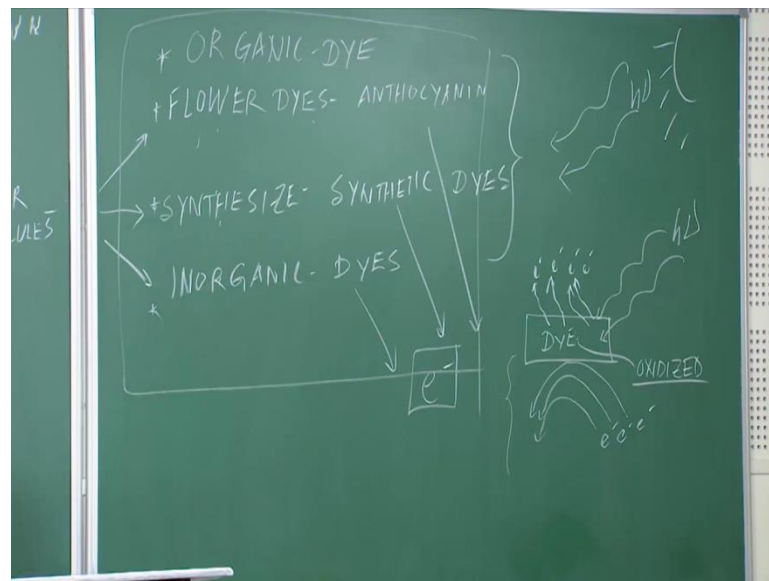 * ORGANIC-DYE
* FLOWER DYES- ANTHOCYANIN
* SYNTHESIZE- SYNTHETIC DYES
* INORGANIC- DYES
e⁻
hν
hν
e⁻ e⁻ e⁻ e⁻
DYE
OXIDIZED
e⁻ e⁻ e⁻